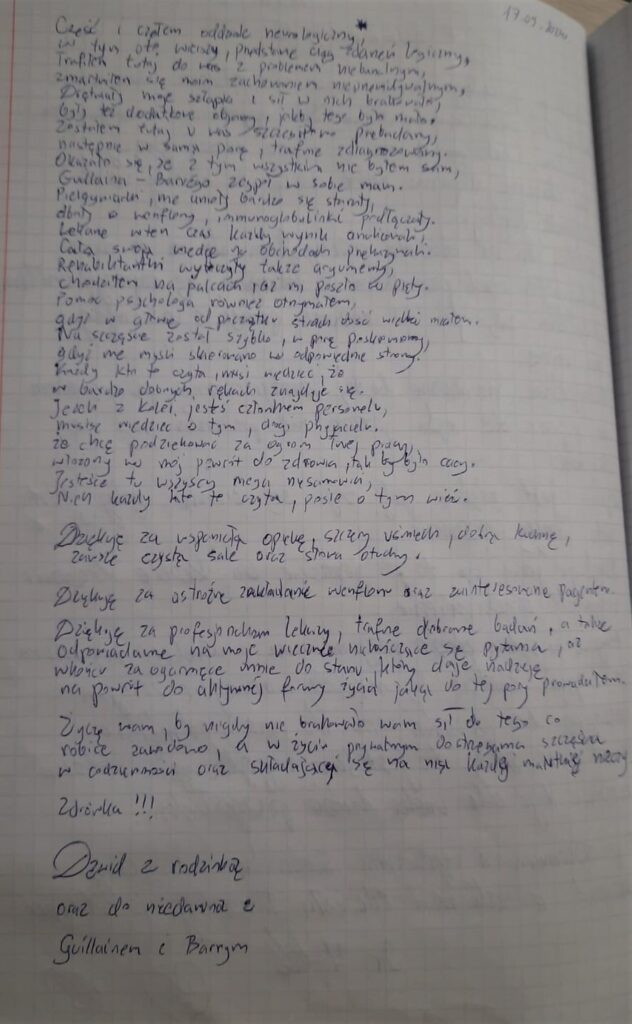 17.09.2024
Cześć i czołem oddziale neurologiczny,
w tym oto wierszu, przedstawię ciąg zdarzeń logiczny,
Trafiłem tutaj do was z problemem niebanalnym,
zmartwiłem się moim zachowaniem nieprzewidywalnym,
Drętwiały moje i sił w nich brakowało,
były też dodatkowe objawy, jakby tego było mało.
Zostałem tutaj u was szczegółowo przebadany,
następnie w samą porę, trafnie zdiagnozowany.
Okazało się, że z tym wszystkim nie byłem sam,
Guillaina - Barrégo zespół w sobie mam.
Pielęgniarki, mną umiały bardzo się starały,
dbały o wenflony, immunoglobulinki podłączały.
Lekarze w ten czas każdy wynik analizowali,
Całą swoją wiedzę na obchodach przekazywali.
Rehabilitantki wytoczyły także argumenty,
chodziłem na palcach, już mi poszło w pięty.
Pomoc psychologa również otrzymałem,
gdyż w głowie od początku strach dość wielki miałem.
Na szczęście został szybko, w porę poskromiony,
gdyż me myśli skierowano w odpowiednie strony.
Każdy kto to czyta, musi wiedzieć, że
w bardzo dobrych rękach znajduje się.
Jeżeli z kolei jesteś członkiem personelu,
musisz wiedzieć o tym, drogi przyjacielu.
że chcę podziękować za ogrom Twej pracy,
włożony w mój powrót do zdrowia, tak by było cacy.
Jesteście tu wszyscy mega niesamowici,
Niech każdy kto to czyta, pośle o tym wieść.
Dziękuję za wspaniałą opiekę, szczery uśmiech, dobrą kuchnię,
zawsze czystą salę oraz słowa otuchy.
Dziękuję za ostrożne zakładanie wenflonów oraz zainteresowanie pacjentem.
Dziękuję za profesjonalizm lekarzy, trafne dobranie badań, a także
odpowiadanie na moje wiecznie niekończące się pytania, aż
w końcu za ogarnięcie mnie do stanu, który daje nadzieję
na powrót do aktywnej formy życia jaką do tej pory prowadziłem.
Życzę wam, by nigdy nie brakowało wam sił do tego co
robicie zawodowo, a w życiu prywatnym dostrzegania szczęścia
w codzienności oraz składającej się na nią każdej malutkiej rzeczy
Zdrówka !!!
Dawid z rodzinką
oraz do niedawna z
Guillainem i Barrym